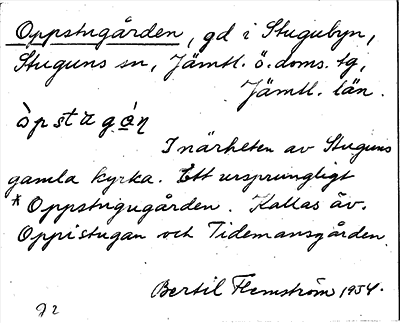 Oppstugården, gd i Stugubyn,
Stuguns sn, Jämtl. ö. doms. tg,
Jämtl. län.
òpstagáṇ
I närheten av Stuguns
gamla kyrka. Ett ursprungligt
*Oppstugugården. Kallas äv.
Oppistugan och Tidemansgården.
Bertil Flemström 1954.